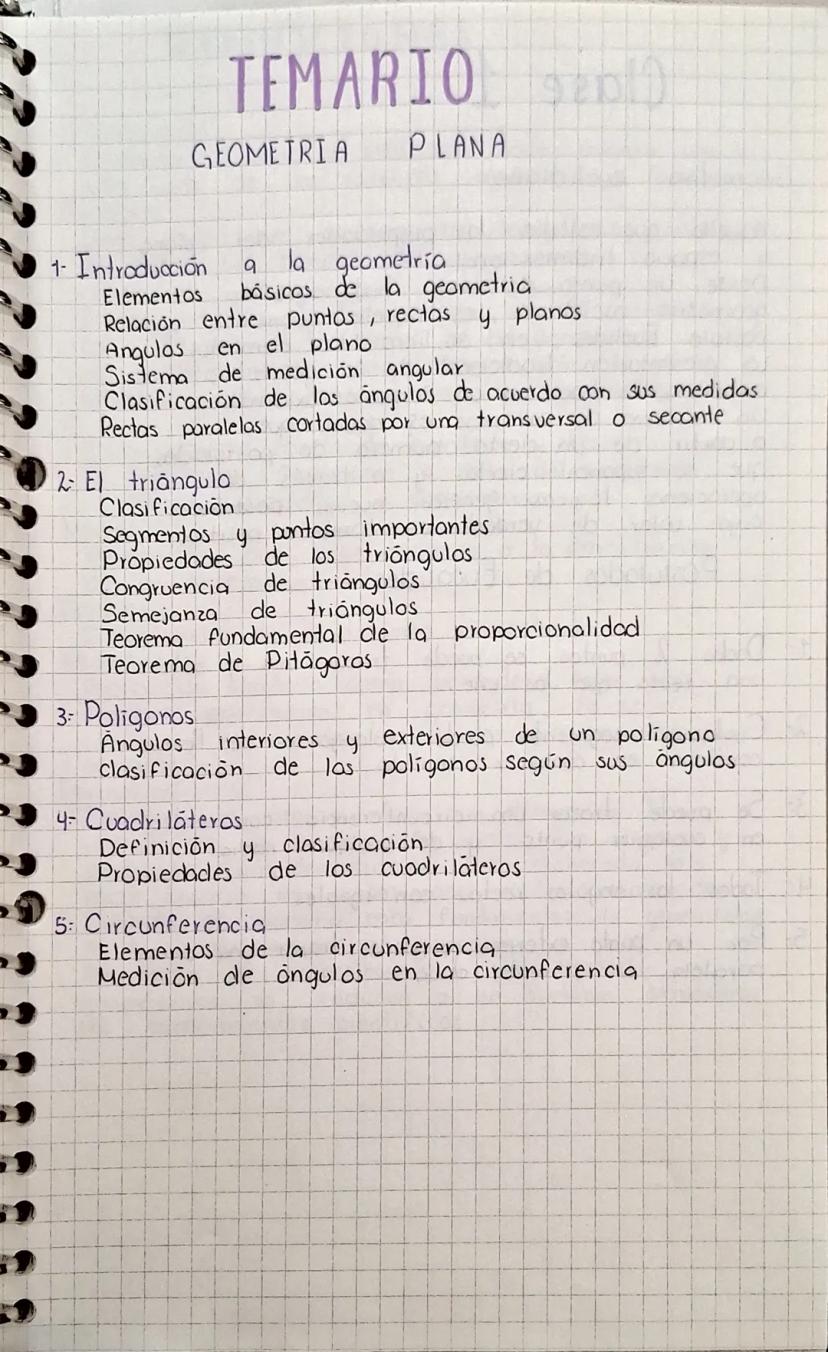 TEMARIO
GEOMETRIA PLANA
1- Introducción a la geometría
Elementos básicos de la geometria
Relación entre puntos, rectas y planos
Angulos en el plano
Sistema de medición angular
Clasificación de los ángulos de acuerdo con sus medidas
Rectas paralelas cortadas por una transversal o secante
2- El triángulo
Clasificación
Segmentos y puntos importantes
Propiedades de los triángulos
Congruencia de triángulos
Semejanza de triángulos
Teorema fundamental de la proporcionalidad
Teorema de Pitágoras
3- Poligonos
Ángulos interiores y exteriores de un polígono
clasificación de los polígonos según sus ángulos
4- Cuadriláteros
Definición y clasificación
Propiedades de los cuadriláteros
5- Circunferencia
Elementos de la circunferencia
Medición de ángulos en la circunferencia